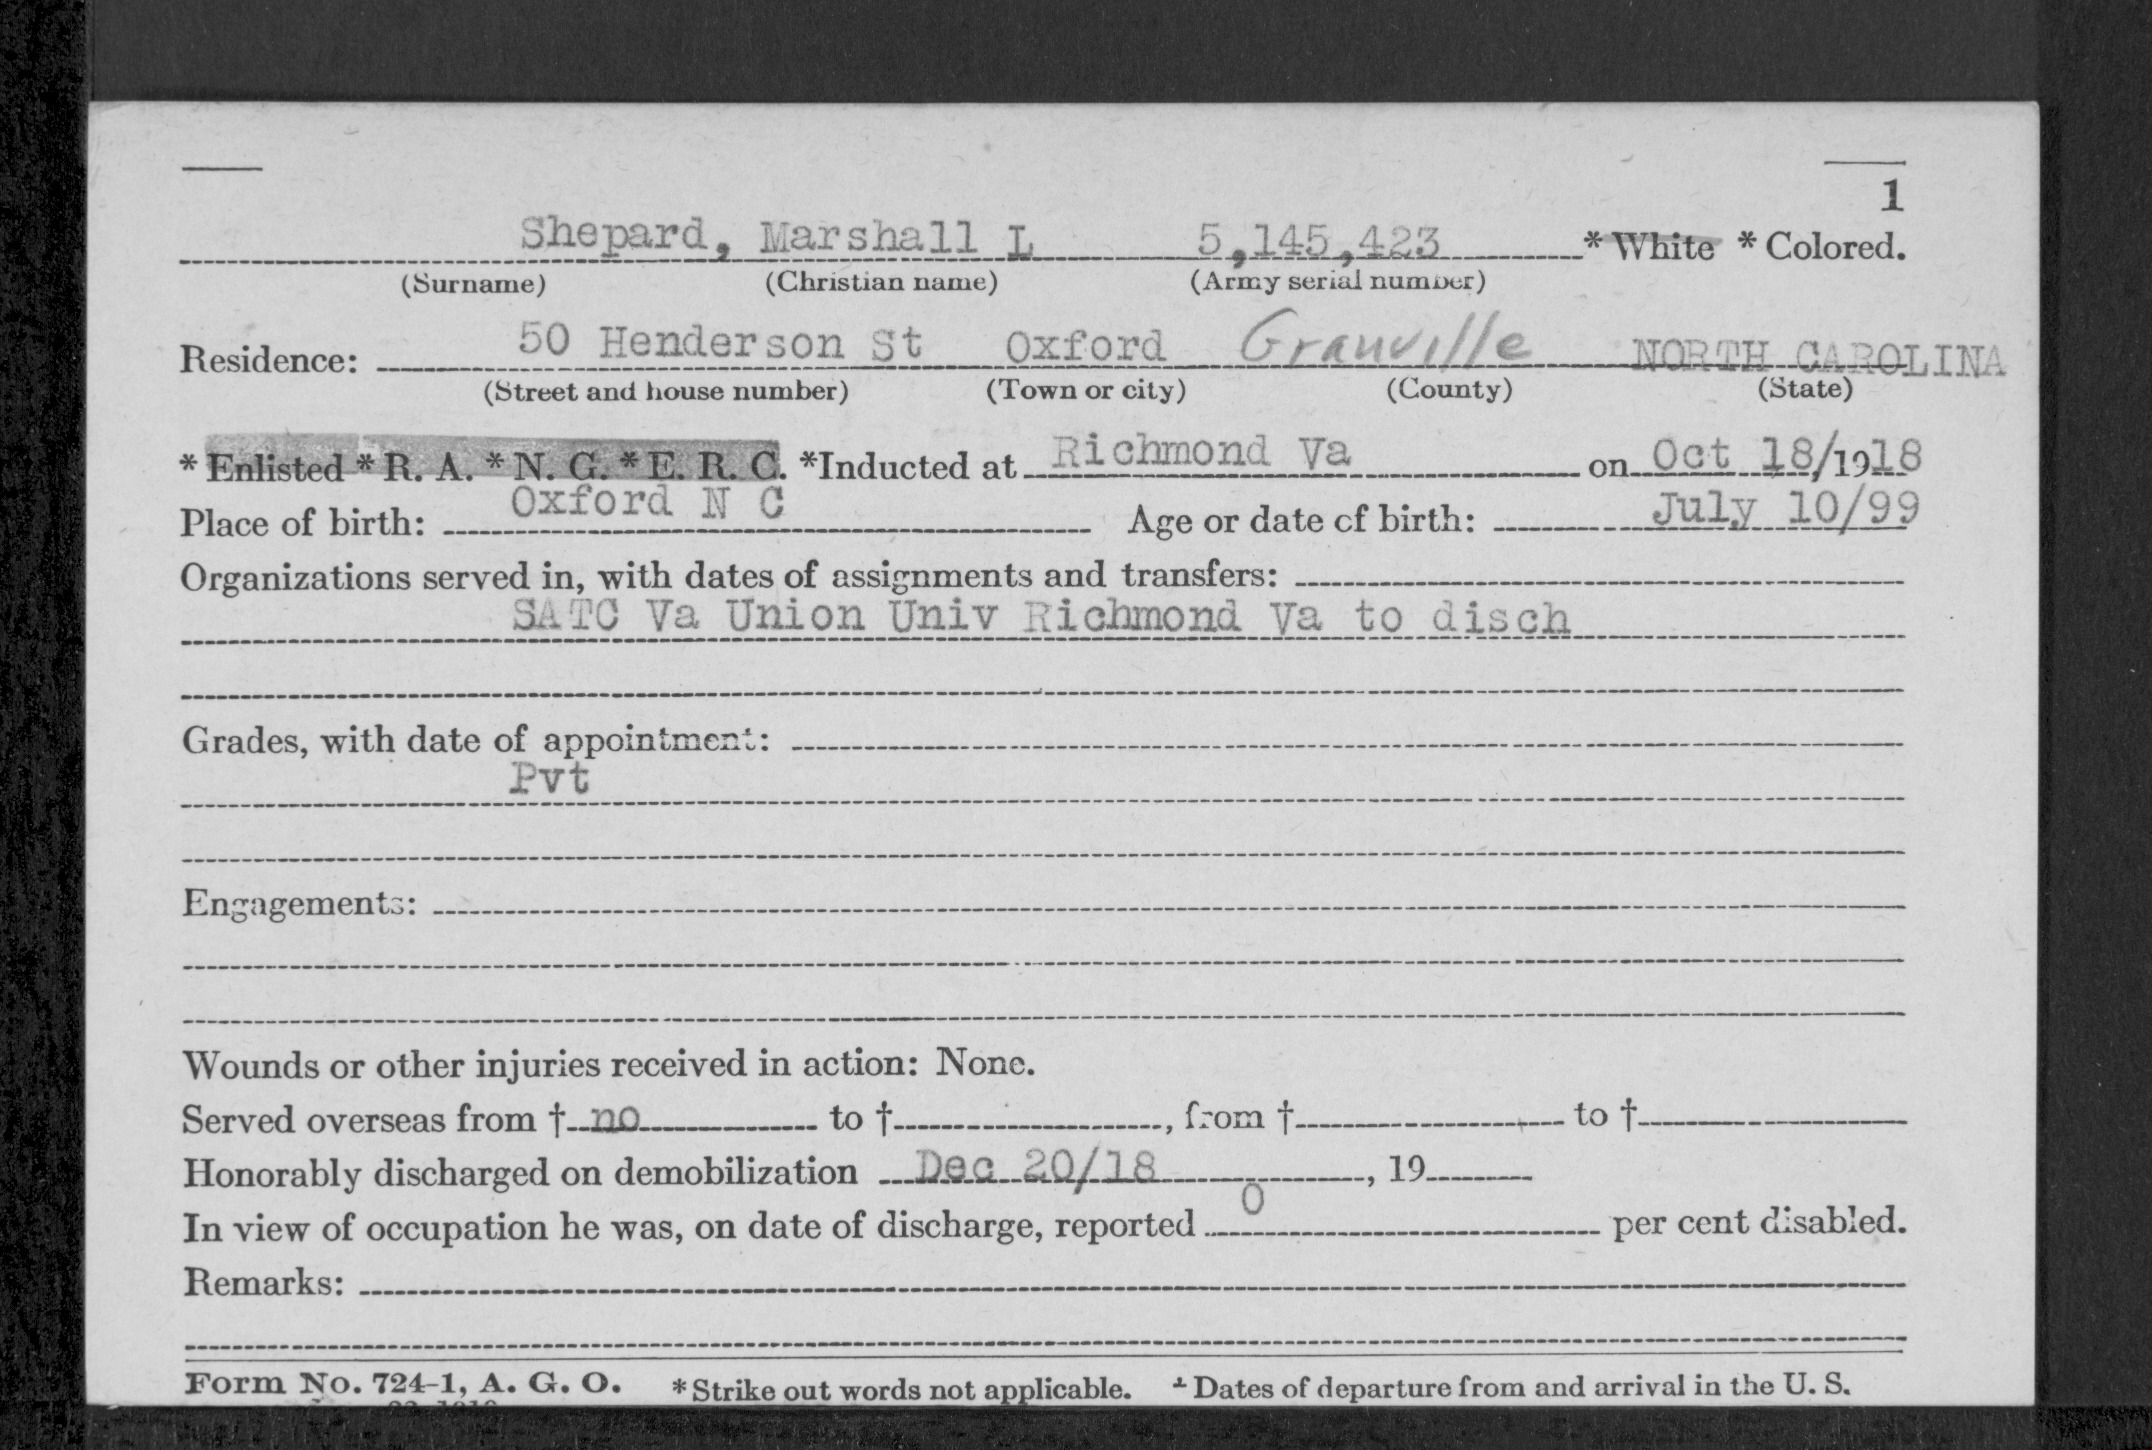 1
Shepard, Marshall L 5,145,423 * White * Colored.
(Surname) (Christian name) (Army serial number)
Residence: 50 Henderson St Oxford Granville NORTH CAROLINA
(Street and house number) (Town or city) (County) (State)
* Enlisted * R. A. * N. G. * E. R. C. *Inducted at Richmond Va on Oct 18/1918
Place of birth: Oxford N C Age or date of birth: July 10/99
Organizations served in, with dates of assignments and transfers:
SATC Va Union Univ Richmond Va to disch
Grades, with date of appointment:
Pvt
Engagements:
Wounds or other injuries received in action: None.
Served overseas from † no to † , from † to †
Honorably discharged on demobilization Dec 20/18 , 19
In view of occupation he was, on date of discharge, reported 0 per cent disabled.
Remarks:
Form No. 724-1, A. G. O. * Strike out words not applicable. † Dates of departure from and arrival in the U. S.